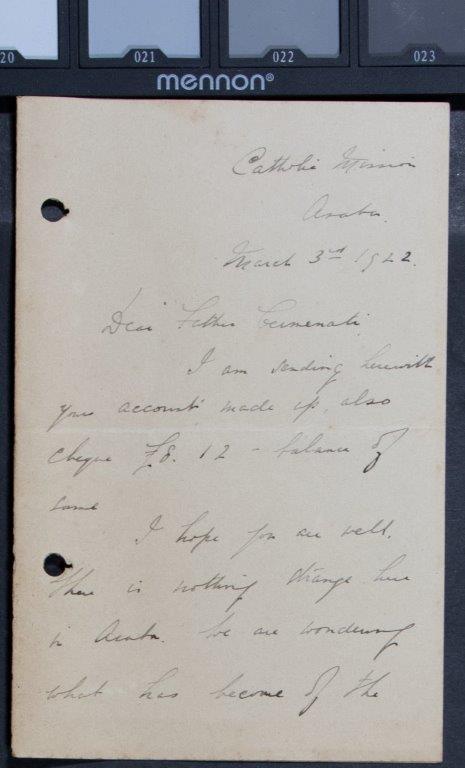 20 021 022 023
mennon®
Catholic Mission
Asaba.
March 3rd 1922.
Dear Father Cermenati
I am sending herewith
your account made up, also
cheque £8. 12 - balance of
same
I hope you are well.
There is nothing strange here
in Asaba. We are wondering
what has become of the